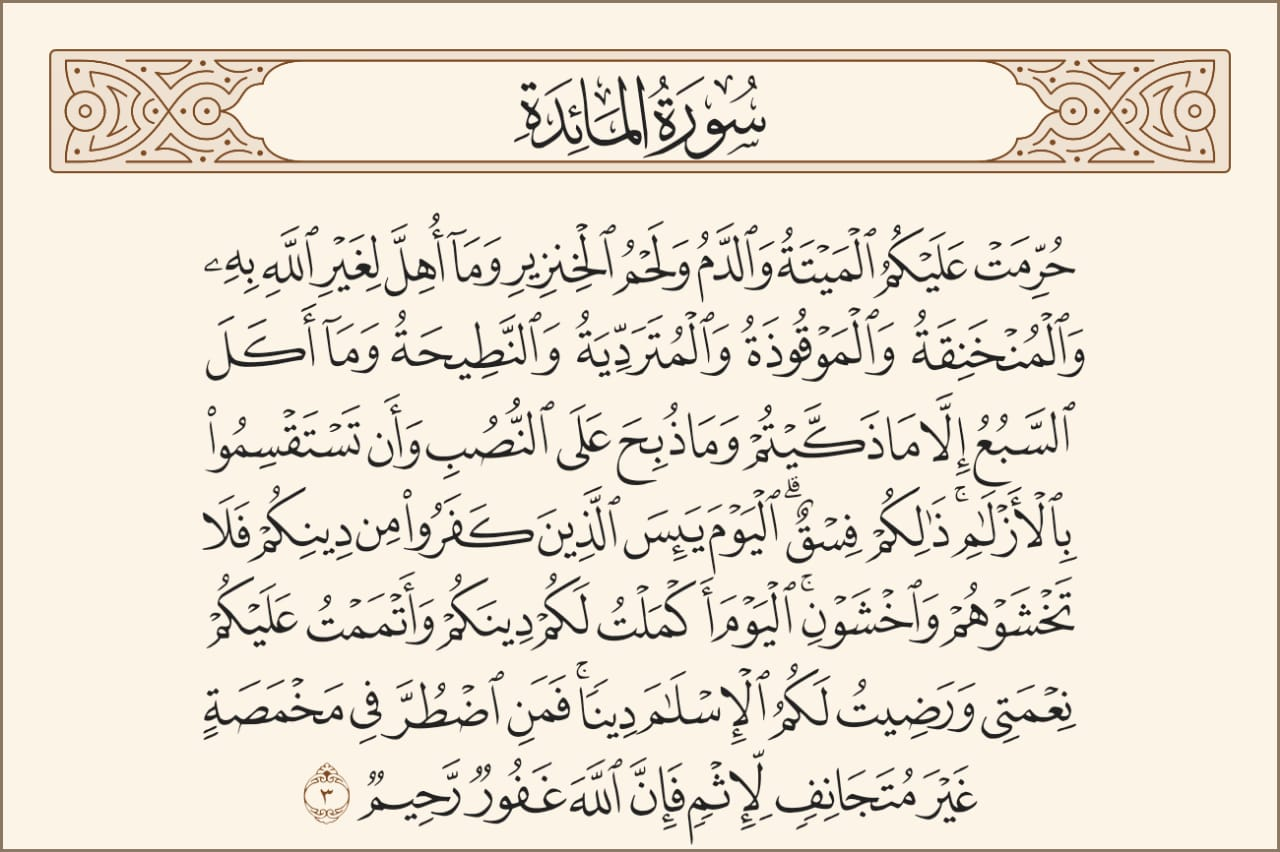 سُورَةُ المَائِدَةِ
حُرِّمَتۡ عَلَيۡكُمُ ٱلۡمَيۡتَةُ وَٱلدَّمُ وَلَحۡمُ ٱلۡخِنزِيرِ وَمَآ أُهِلَّ لِغَيۡرِ ٱللَّهِ بِهِۦ
وَٱلۡمُنۡخَنِقَةُ وَٱلۡمَوۡقُوذَةُ وَٱلۡمُتَرَدِّيَةُ وَٱلنَّطِيحَةُ وَمَآ أَكَلَ
ٱلسَّبُعُ إِلَّا مَا ذَكَّيۡتُمۡ وَمَا ذُبِحَ عَلَى ٱلنُّصُبِ وَأَن تَسۡتَقۡسِمُواْ
بِٱلۡأَزۡلَٰمِۚ ذَٰلِكُمۡ فِسۡقٌۗ ٱلۡيَوۡمَ يَئِسَ ٱلَّذِينَ كَفَرُواْ مِن دِينِكُمۡ فَلَا
تَخۡشَوۡهُمۡ وَٱخۡشَوۡنِۚ ٱلۡيَوۡمَ أَكۡمَلۡتُ لَكُمۡ دِينَكُمۡ وَأَتۡمَمۡتُ عَلَيۡكُمۡ
نِعۡمَتِي وَرَضِيتُ لَكُمُ ٱلۡإِسۡلَٰمَ دِينٗاۚ فَمَنِ ٱضۡطُرَّ فِي مَخۡمَصَةٍ
غَيۡرَ مُتَجَانِفٖ لِّإِثۡمٖ فَإِنَّ ٱللَّهَ غَفُورٞ رَّحِيمٞ ٣